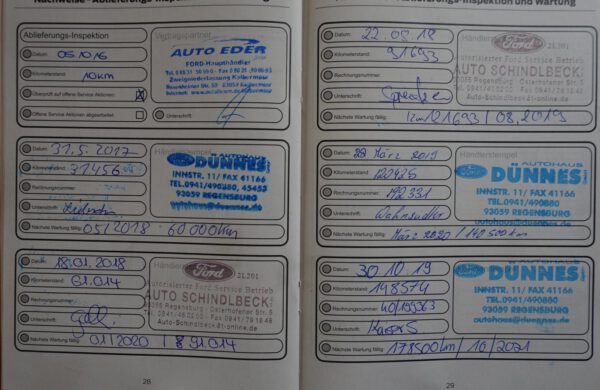 Nachweise - Ablieferungs-Inspektion und Wartung
Ablieferungs-Inspektion
Vertragspartner
Datum: 05/10/16
Kilometerstand: 10km
Überprüft auf offene Service Aktionen: X
Offene Service Aktionen abgearbeitet:
Unterschrift:
AUTO EDER
FORD-Haupthändler
Zweigniederlassung Kolbermoor
Rosenheimer Str. 53 83059 Kolbermoor
Datum: 31.5.2017
Kilometerstand: 31456
Rechnungsnummer:
Unterschrift:
Nächste Wartung fällig: 05/2018 60000km
Händlerstempel
Ford DÜNNES
INNSTR. 11/ FAX 41166
TEL.0941/490880, 45453
93059 REGENSBURG
autohaus@duennes.de
Datum: 18.01.2018
Kilometerstand: 61.014
Rechnungsnummer:
Unterschrift:
Nächste Wartung fällig: 01/2020 / 91.014
Ford 2L201
Autorisierter Ford Service Betrieb
AUTO SCHINDLBECK
93059 Regensburg Osterhofener Str. 5
Auto-Schindlbeck@t-online.de
28
Ablieferungs-Inspektion und Wartung
Datum: 22.08.18
Kilometerstand: 91693
Rechnungsnummer:
Unterschrift:
Nächste Wartung fällig: km 121693 / 08/2019
Ford 2L201
Autorisierter Ford Service Betrieb
AUTO SCHINDLBECK
93059 Regensburg Osterhofener Str. 5
Auto-Schindlbeck@t-online.de
Datum: 28 März 2019
Kilometerstand: 120425
Rechnungsnummer: 192331
Unterschrift:
Nächste Wartung fällig: März 2020 / 140 500km
Händlerstempel
AUTOHAUS
Ford DÜNNES
INNSTR. 11/ FAX 41166
TEL.0941/490880
93059 REGENSBURG
autohaus@duennes.de
Datum: 30.10.19
Kilometerstand: 148574
Rechnungsnummer:
Unterschrift:
Nächste Wartung fällig: 178500km / 10/2021
AUTOHAUS
Ford DÜNNES
INNSTR. 11/ FAX 41166
TEL.0941/490880
93059 REGENSBURG
autohaus@duennes.de
29